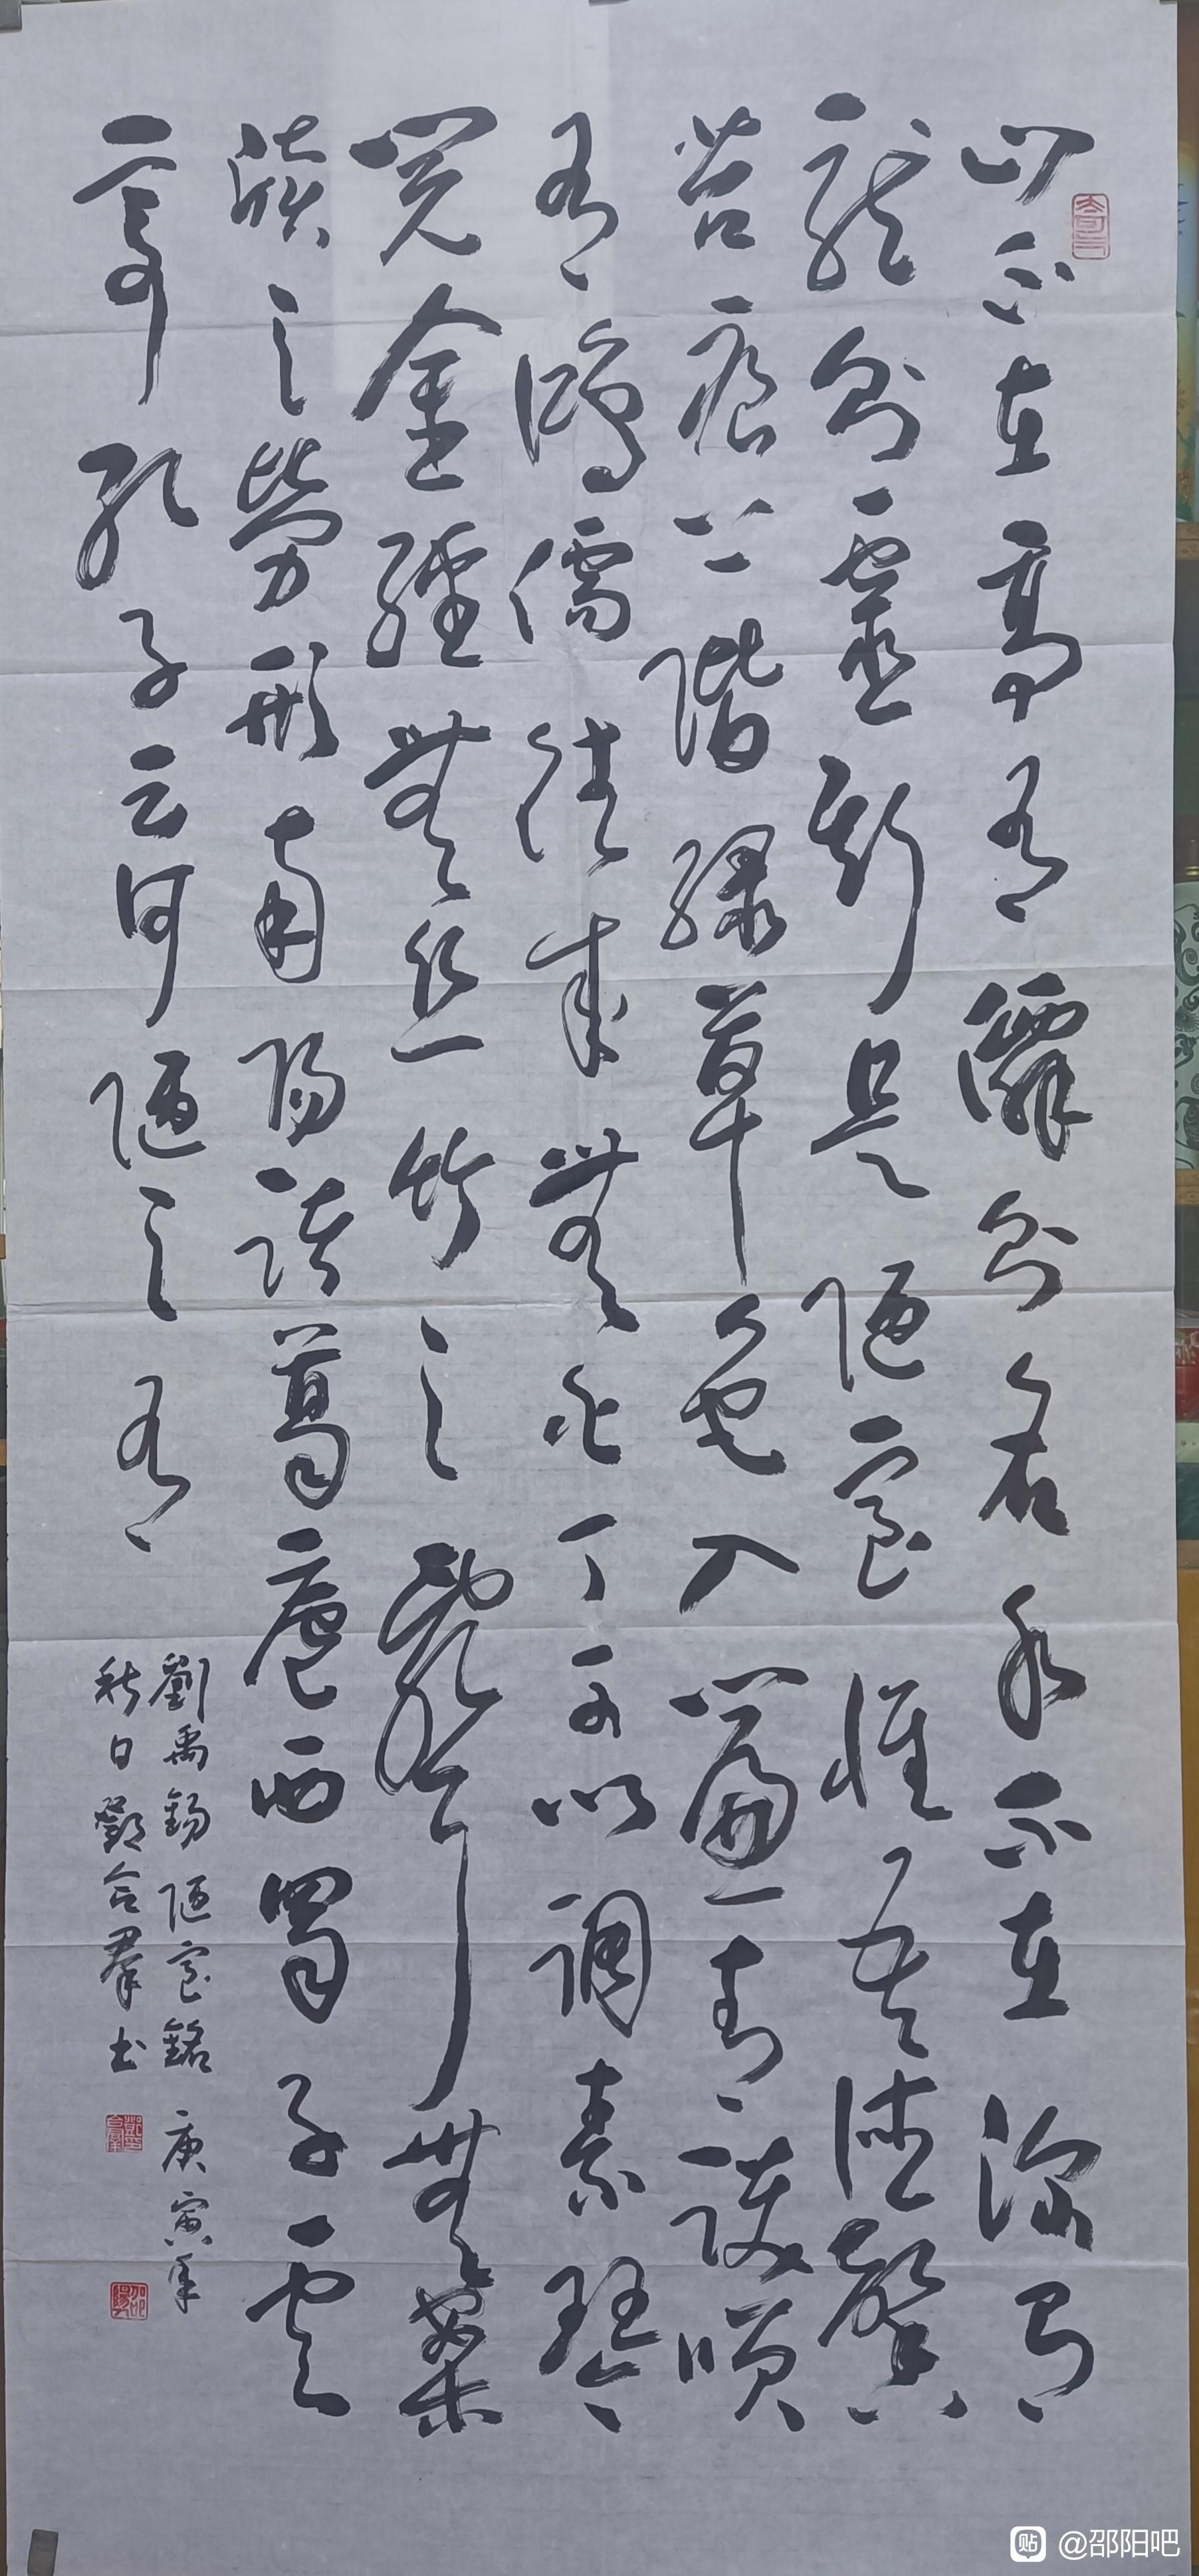 山不在高有僊則名水不在深有
龍則靈斯是陋室惟吾德馨
苔痕上階綠草色入簾青談咲
有鴻儒往來無白丁可以調素琴
閱金經無絲竹之亂耳無案
牘之勞形南陽諸葛廬西蜀子雲
亭孔子云何陋之有
劉禹錫陋室銘庚寅年
秋日鄧合羣书
贴 @邵阳吧